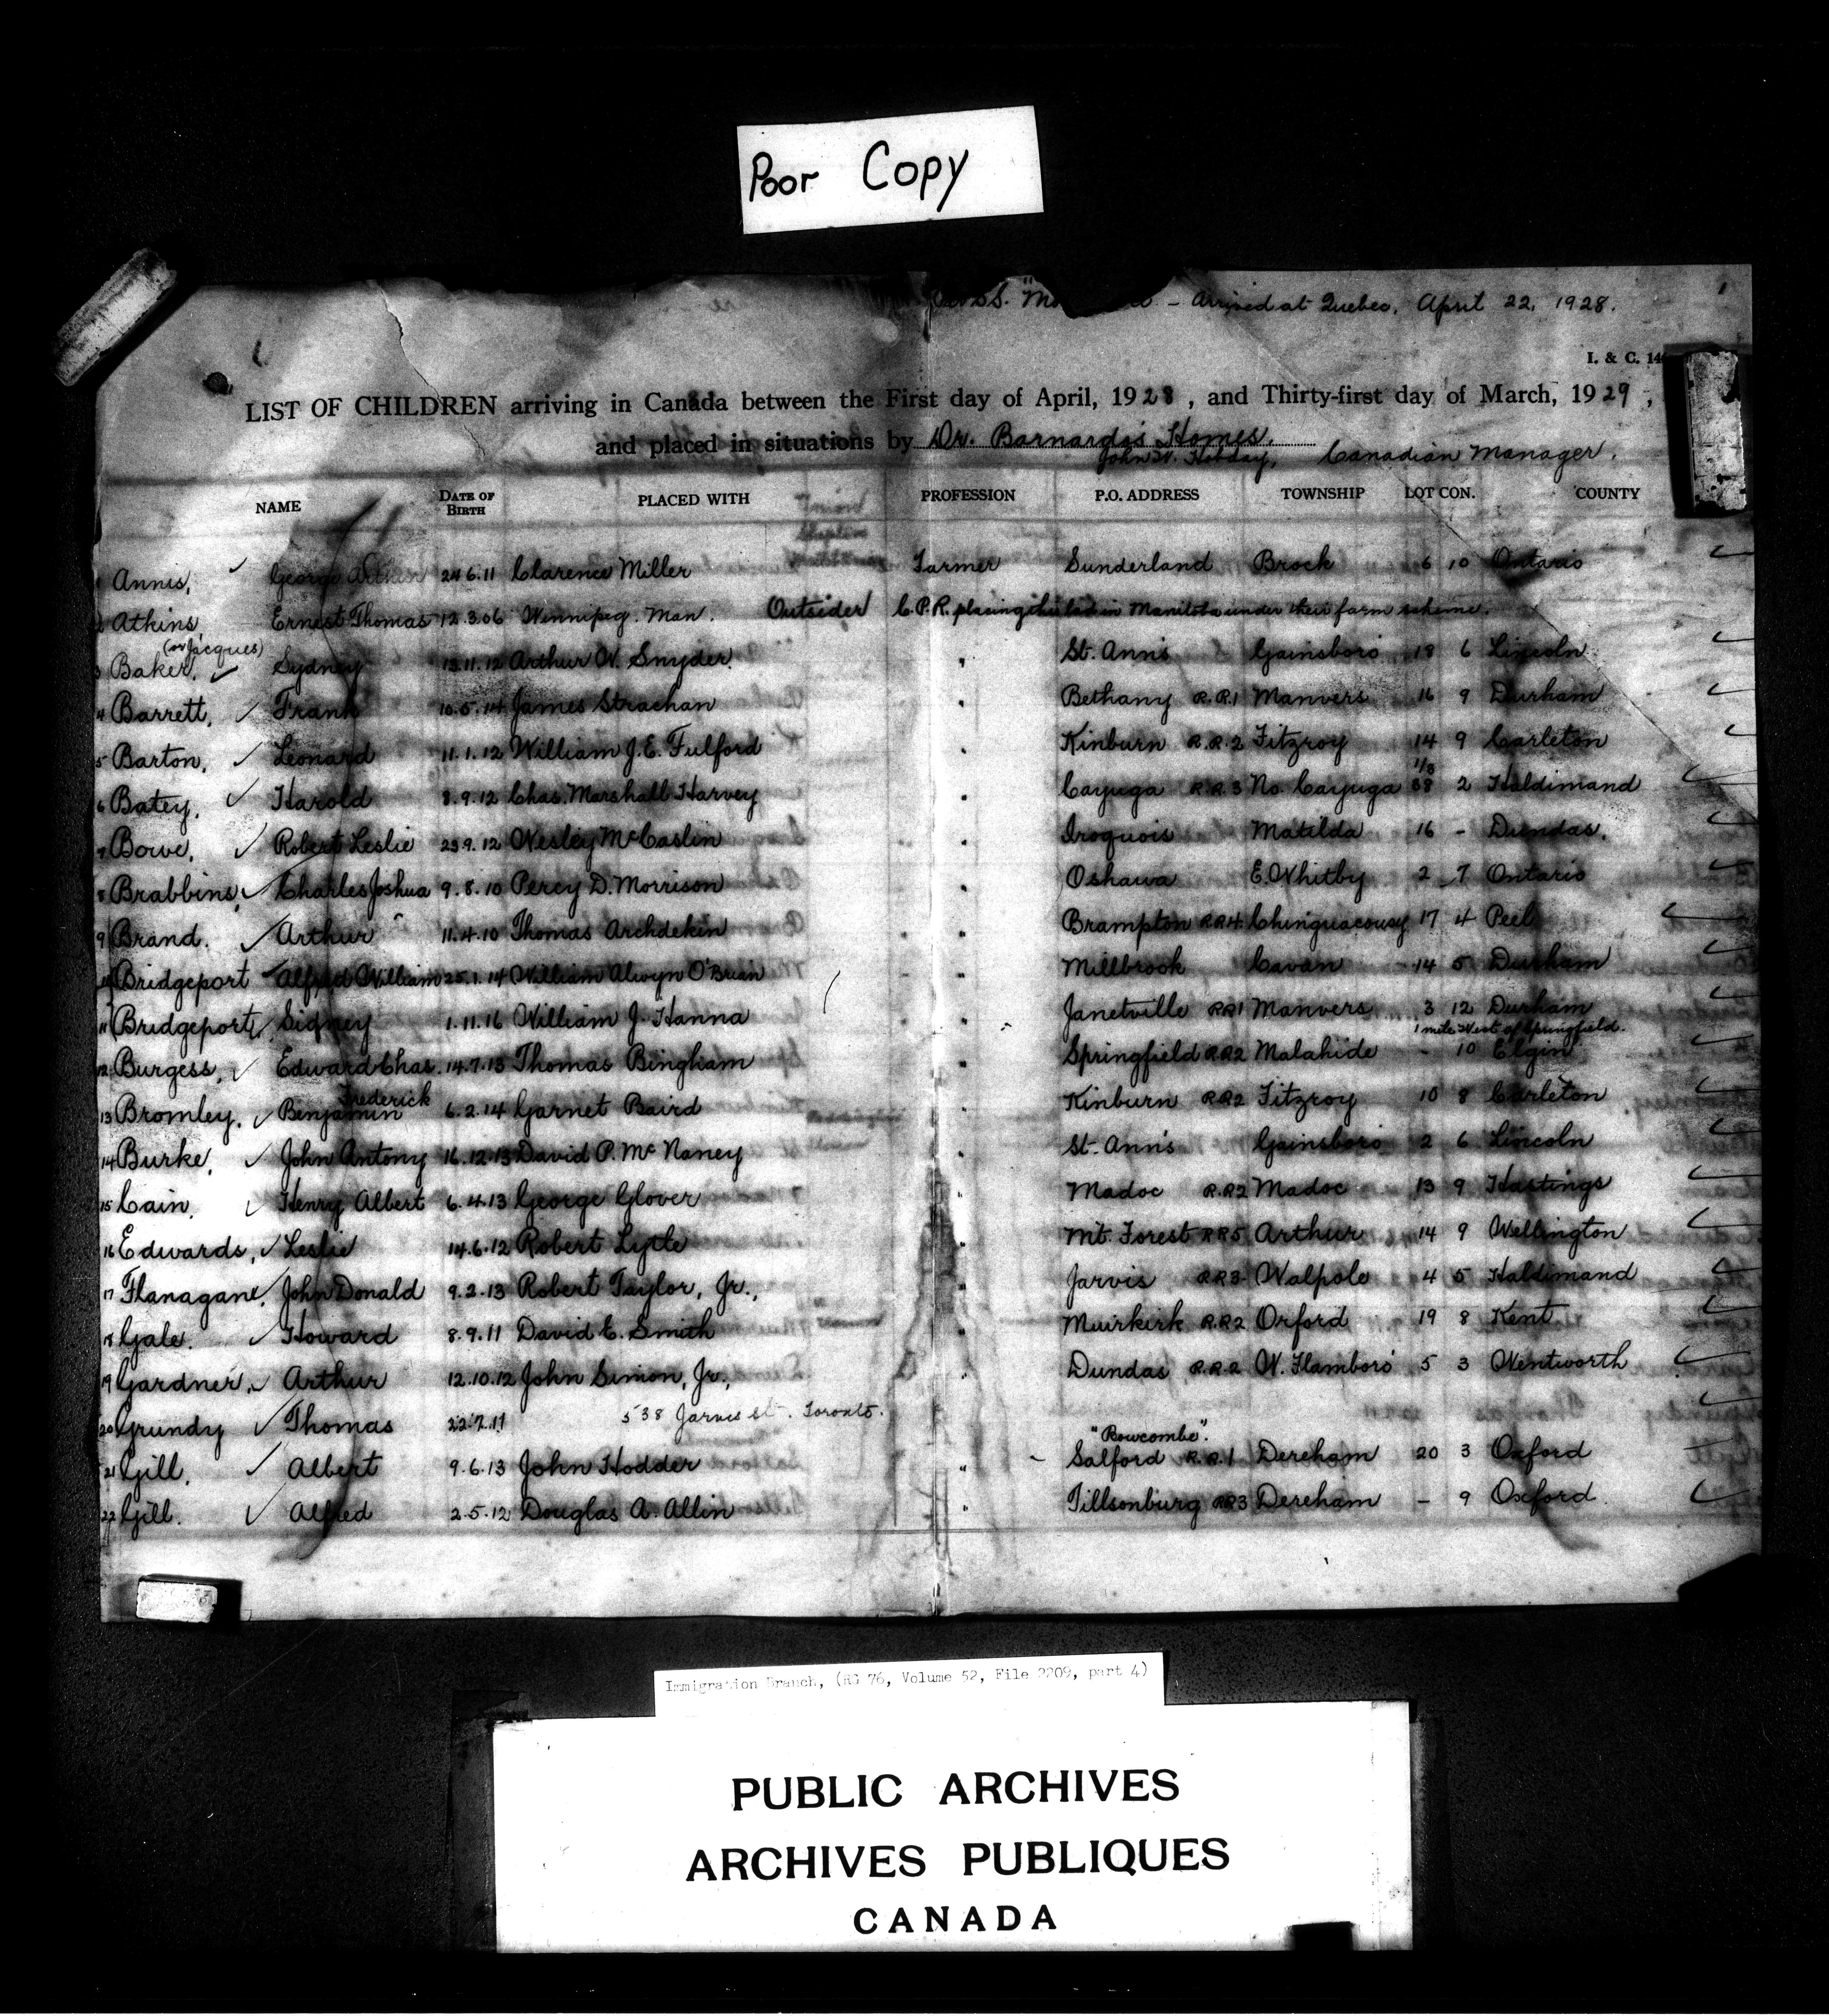 Poor Copy
1
S.S. - Arrived at Quebec, April 22, 1928.
I. & C. 14
LIST OF CHILDREN arriving in Canada between the First day of April, 1928, and Thirty-first day of March, 1929,
and placed in situations by Dr. Barnardo's Homes.
John W. Hobday, Canadian Manager.
NAME DATE OF BIRTH PLACED WITH PROFESSION P.O. ADDRESS TOWNSHIP LOT CON. COUNTY
1 Annis, George Arthur 24.6.11 Clarence Miller Farmer Sunderland Brock 6 10 Ontario
2 Atkins Ernest Thomas 12.3.06 Winnipeg. Man. Outsider C.P.R. placing this lad in Manitoba under their farm scheme.
(or Jacques)
3 Baker, Sydney 13.11.12 Arthur W. Snyder " St. Ann's Gainsboro 18 6 Lincoln
4 Barrett, Frank 10.5.14 James Strachan " Bethany R.R.1 Manvers 16 9 Durham
5 Barton, Leonard 11.1.12 William J.E. Fulford " Kinburn R.R.2 Fitzroy 14 9 Carleton
6 Batey, Harold 8.9.12 Chas. Marshall Harvey " Cayuga R.R.3 No. Cayuga 1/3 38 2 Haldimand
7 Bowe, Robert Leslie 23.9.12 Wesley McCaslin " Iroquois Matilda 16 - Dundas.
8 Brabbins, Charles Joshua 9.8.10 Percy D. Morrison " Oshawa E. Whitby 2 7 Ontario
9 Brand. Arthur 11.4.10 Thomas Archdekin " Brampton RR4 Chinguacousy 17 4 Peel
10 Bridgeport Alfred William 25.1.14 William Alwyn O'Brian " Millbrook Cavan 14 5 Durham
11 Bridgeport, Sidney 1.11.16 William J. Hanna " Janetville RR1 Manvers 3 12 Durham
1 mile West of Springfield.
12 Burgess, Edward Chas. 14.7.13 Thomas Bingham " Springfield RR2 Malahide - 10 Elgin
13 Bromley, Benjamin Frederick 6.2.14 Garnet Baird " Kinburn RR2 Fitzroy 10 8 Carleton
14 Burke, John Antony 16.12.13 David P. McNaney " St. Ann's Gainsboro 2 6 Lincoln
15 Cain, Henry Albert 6.4.13 George Glover " Madoc R.R2 Madoc 13 9 Hastings
16 Edwards, Leslie 14.6.12 Robert Lytle " Mt. Forest RR5 Arthur 14 9 Wellington
17 Flanagane, John Donald 9.2.13 Robert Taylor, Jr., " Jarvis RR3 Walpole 4 5 Haldimand
18 Gale. Howard 8.9.11 David E. Smith " Muirkirk R.R2 Orford 19 8 Kent
19 Gardner, Arthur 12.10.12 John Simon, Jr., " Dundas R.R.2 W. Flamboro' 5 3 Wentworth
20 Grundy Thomas 22.7.11 538 Jarvis St. Toronto.
"Bowcombe".
21 Gill, Albert 9.6.13 John Hodder " - Salford R.R.1 Dereham 20 3 Oxford
22 Gill. Alfred 2.5.12 Douglas A. Allin " Tillsonburg RR3 Dereham - 9 Oxford.
Immigration Branch, (RG 76, Volume 52, File 2209, part 4)
PUBLIC ARCHIVES
ARCHIVES PUBLIQUES
CANADA